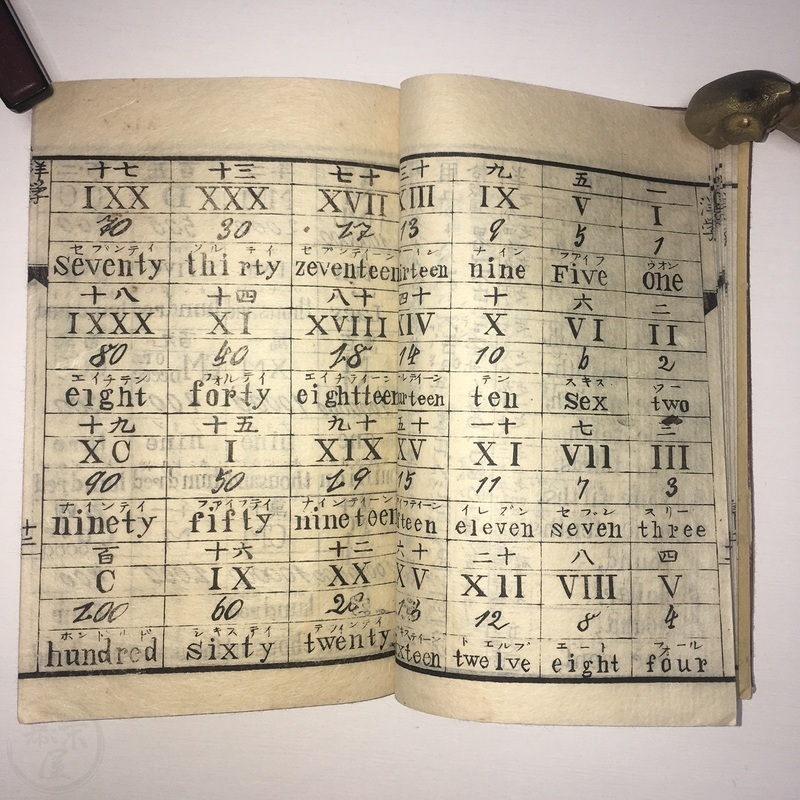 一
I
1
ウオン
one
二
II
2
ツー
two
三
III
3
スリー
three
四
V
4
フォール
four
五
V
5
ファイフ
Five
六
VI
6
スキス
sex
七
VII
7
セブン
seven
八
VIII
8
エート
eight
九
IX
9
ナイン
nine
十
X
10
テン
ten
十一
XI
11
イレブン
eleven
十二
XII
12
トエルブ
twelve
十三
XIII
13
irteen
十四
XIV
14
urteen
十五
XV
15
teen
十六
XV
xteen
十七
XVII
17
セブンティーン
zeventeen
十八
XVIII
18
エイチティーン
eightteen
十九
XIX
19
ナインティーン
nineteen
二十
XX
20
twenty
三十
XXX
30
thirty
四十
XI
40
フォルテイ
forty
五十
I
50
ファイフテイ
fifty
六十
IX
60
シキステイ
sixty
七十
IXX
70
セブンテイ
seventy
八十
IXXX
80
エイチテン
eight
九十
XC
90
ナインテイ
ninety
百
C
100
ホントルド
hundred
洋学
十二